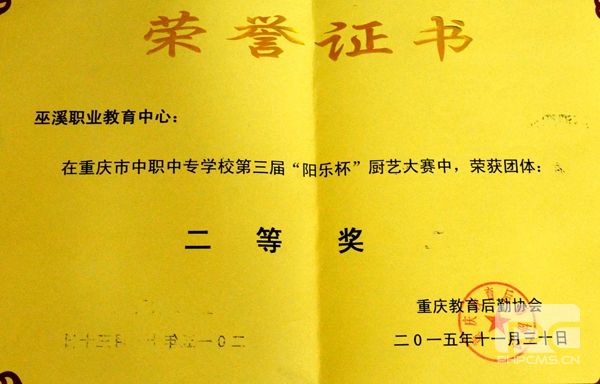 荣誉证书
巫溪职业教育中心：
在重庆市中职中专学校第三届“阳乐杯”厨艺大赛中，荣获团体：
二等奖
重庆教育后勤协会
二0一五年十一月三十日
PHPCMS.CN